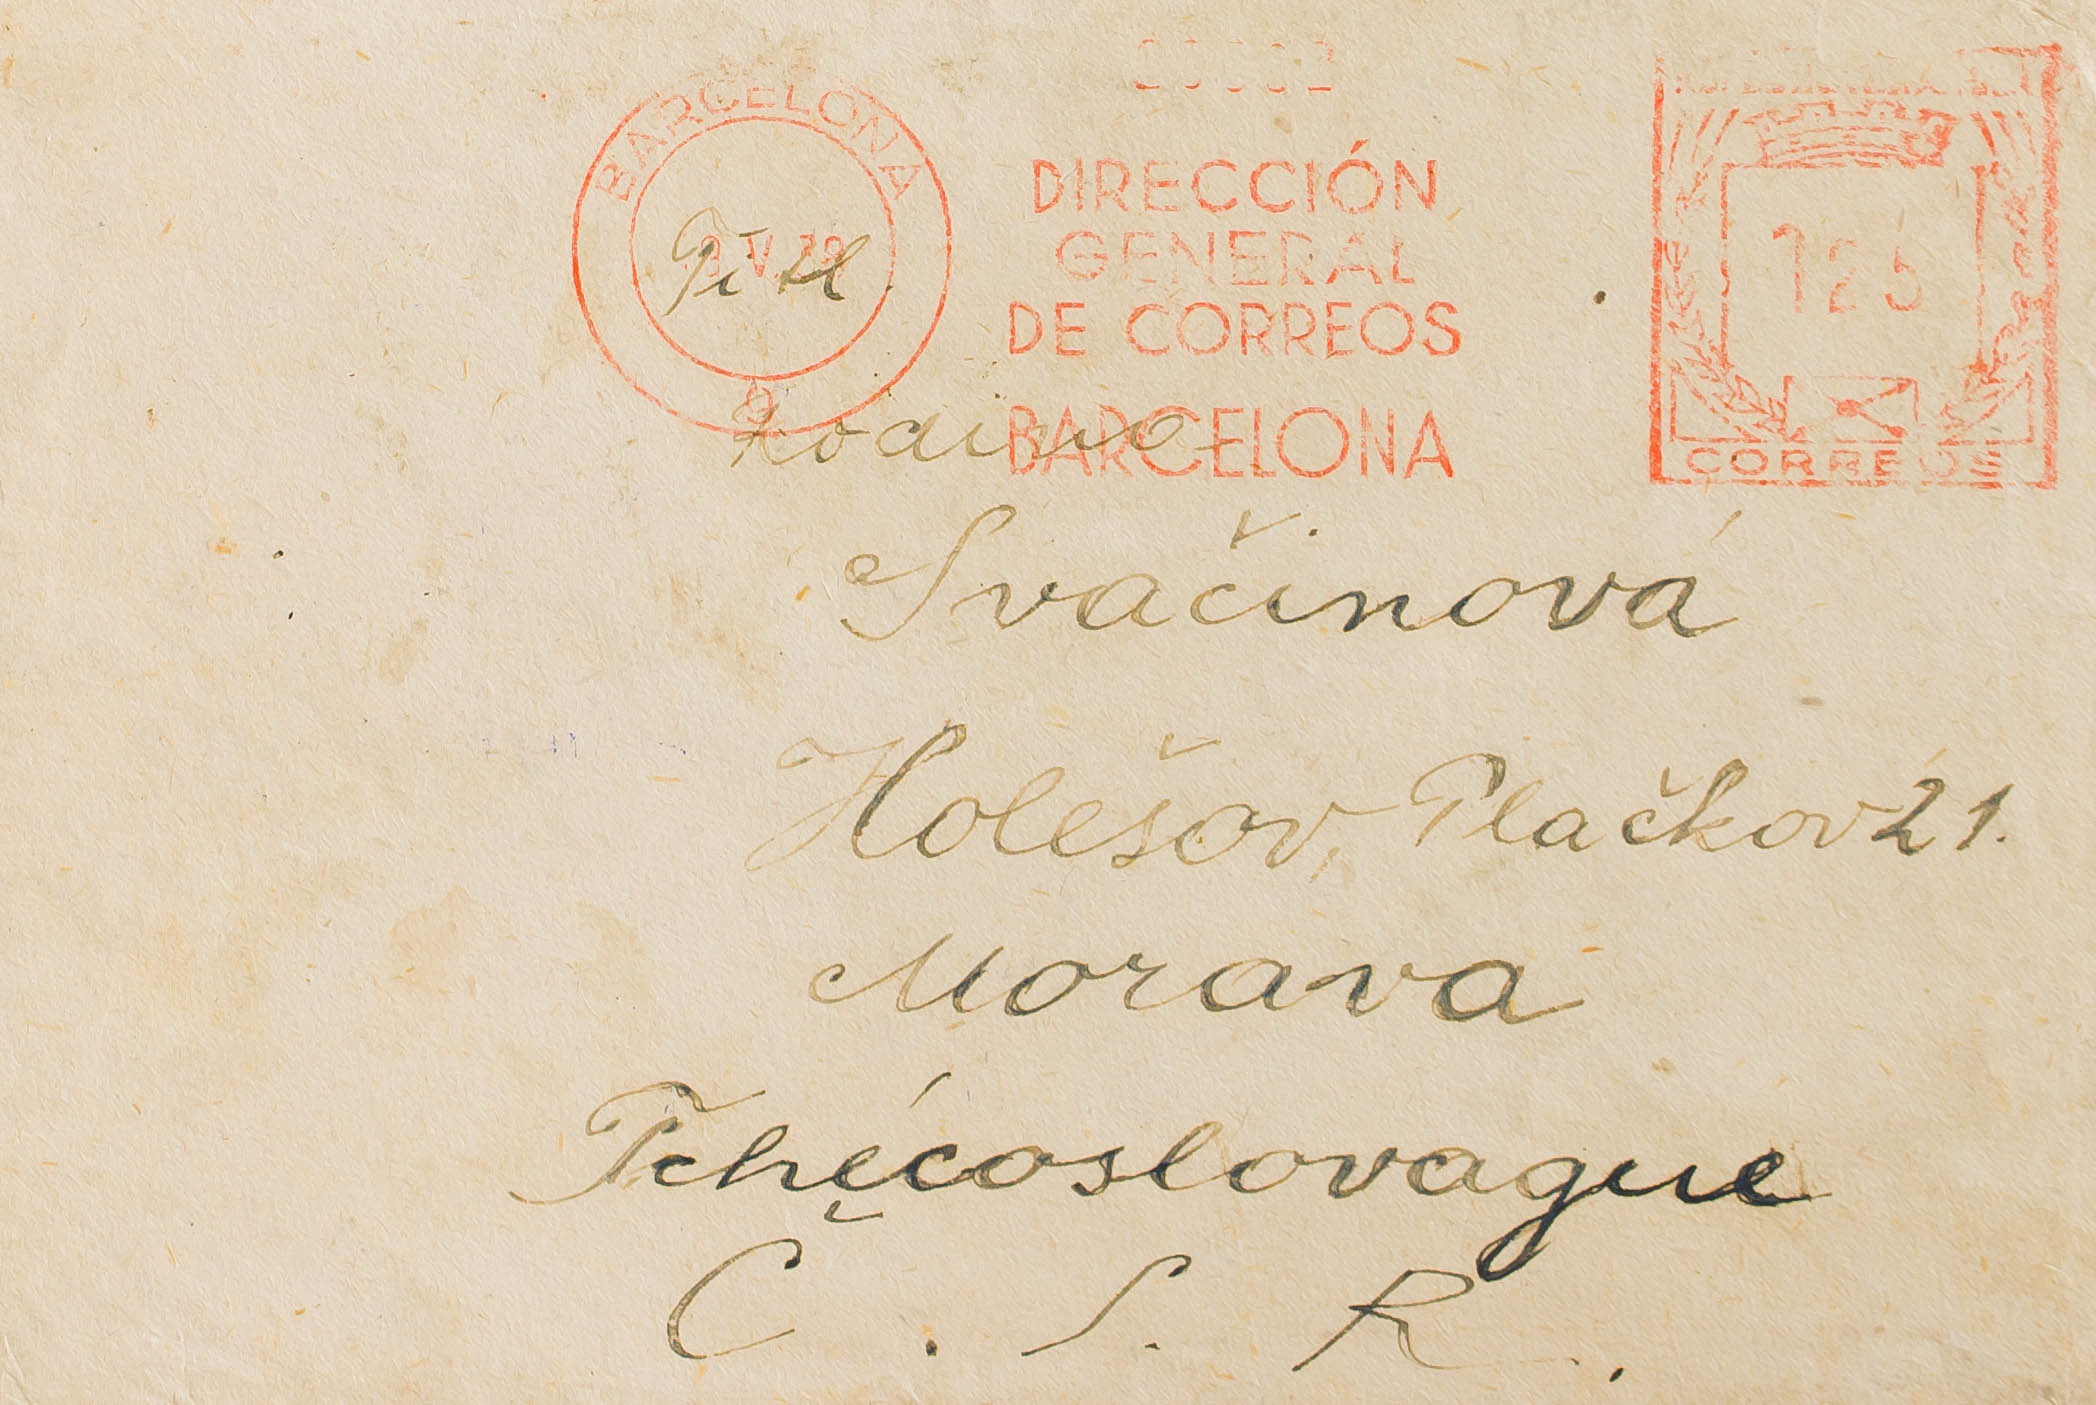 BARCELONA
DIRECCIÓN
GENERAL
DE CORREOS
BARCELONA
125
CORREOS
Ctěl.
rodina
Svačinová
Holešov, Plačkov 21.
Morava
Tchécoslovaque
C. S. R.